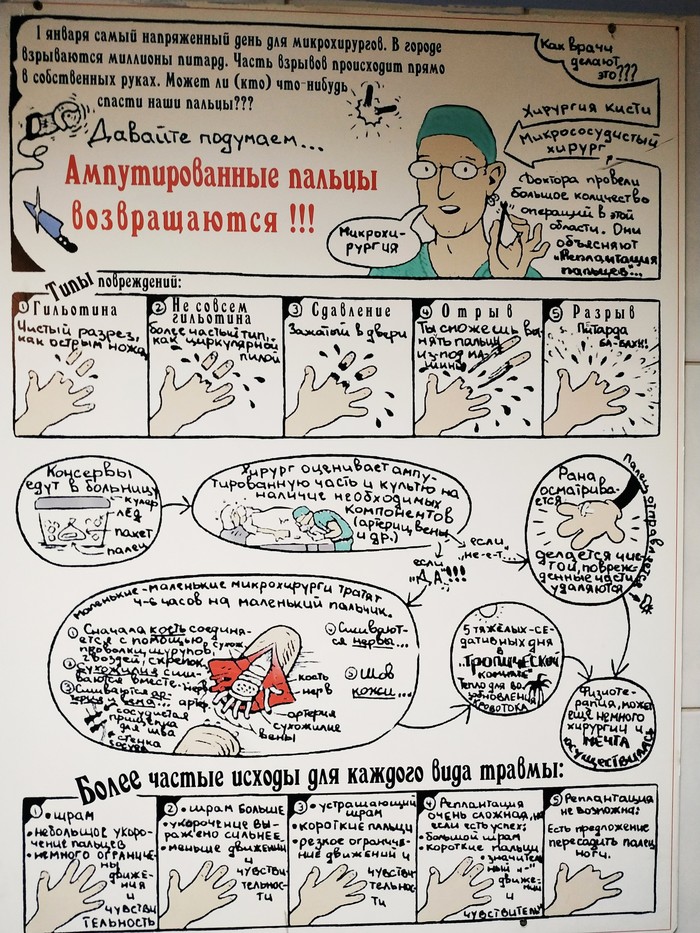 1 января самый напряженный день для микрохирургов. В городе
взрываются миллионы питард. Часть взрывов происходит прямо
в собственных руках. Может ли (кто) что-нибудь
спасти наши пальцы???
Давайте подумаем...
Ампутированные пальцы
возвращаются !!!
Как врачи
делают
это???
Хирургия кисти
Микрососудистый
хирург
Доктора провели
большое количество
операций в этой
области. Они
объясняют
"Реплантация
пальцев"...
Микрохи-
рургия
Типы повреждений:
1 Гильотина
Чистый разрез,
как острым ножом
2 Не совсем
гильотина
более частый тип,
как циркулярной
пилой
3 Сдавление
Зажатый в двери
4 Отрыв
Ты сможешь вы-
нять пальцы
из-под ма-
шины
5 Разрыв
Питарда
БА-БАХ!!
Консервы
едут в больницу
кулер
лёд
пакет
палец
Хирург оценивает ампу-
тированную часть и культю на
наличие необходимых
компонентов
(артериц, вены
и др.)
если
"ДА"!!!
если
"не-е-т..."
Рана
осматрива-
ется
делается чис-
той, повреж-
денные части
удаляются
палец отправляется в
Маленькие-маленькие микрохирурги тратят
4-6 часов на маленький пальчик.
1 Сначала кость соединя-
ется с помощью
проволки, шурупов,
гвоздей, скрепок
2 сухожилия сши-
ваются вместе.
3 Сшиваются ар-
терия и вена...
сосудистая
прищепка
для шва
стенка
сосуда
сухож.
нерв
артер.
кость
нерв
артерия
сухожилие
вены
4 Сшивают-
ся нервы...
5 Шов
кожи...
5 тяжёлых-се-
дативных дня
в
"Тропической
комнате"
Тепло для во-
зобновления
кровотока
Физиоте-
рапия, может
ещё немного
хирургии и
МЕЧТА
осуществилась
Более частые исходы для каждого вида травмы:
1 • шрам
• небольшое укоро-
чение пальцев
• немного ограниче-
ны
движе-
ния
и
чувстви
тельность
2 • шрам больше
• укорочение вы-
ражено сильнее
• меньше движений
и
чувстви-
тельнос-
ти
3 • устрашающий
шрам
• короткие пальцы
• резкое ограниче-
ние движений и
чувстви
тельнос-
ти
4 Реплантация
очень сложная, но
если есть успех:
• большой шрам
• короткие пальцы
• значитель
ный "-"
движе-
ний
и
чувствител
5 Реплантация
не возможна:
Есть предложение
пересадить палец
ноги.